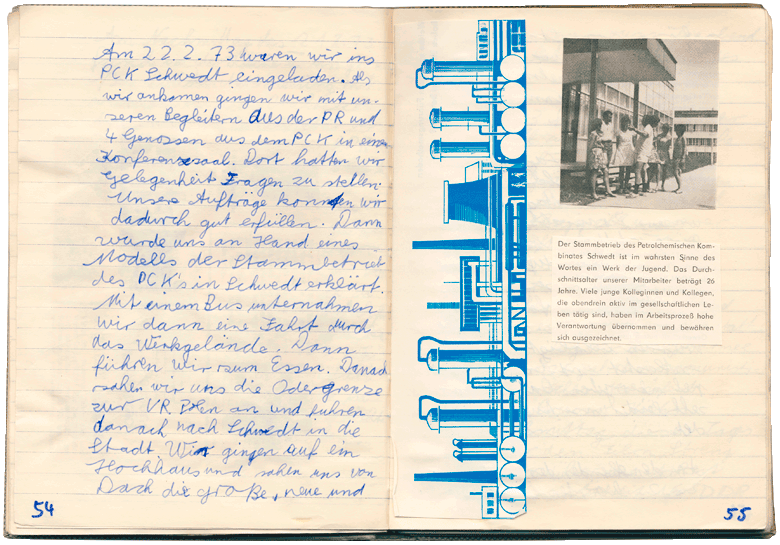 Am 22.2.73 waren wir ins
PCK Schwedt eingeladen. Als
wir ankamen gingen wir mit un-
seren Begleitern aus der PR und
4 Genossen aus dem PCK in einen
Konferenzsaal. Dort hatten wir
Gelegenheit Fragen zu stellen.
Unsere Aufträge konnten wir
dadurch gut erfüllen. Dann
wurde uns an Hand eines
Modells der Stammbetrieb
des PCK's in Schwedt erklärt.
Mit einem Bus unternahmen
wir dann eine Fahrt durch
das Werkgelände. Dann
führen wir zum Essen. Danach
sahen wir uns die Odergrenze
zur VR Polen an und fuhren
danach nach Schwedt in die
Stadt. Wir gingen auf ein
Hochhaus und sahen uns von
Dach die große, neue und
54
Der Stammbetrieb des Petrolchemischen Kom-
binates Schwedt ist im wahrsten Sinne des
Wortes ein Werk der Jugend. Das Durch-
schnittsalter unserer Mitarbeiter beträgt 26
Jahre. Viele junge Kolleginnen und Kollegen,
die obendrein aktiv im gesellschaftlichen Le-
ben tätig sind, haben im Arbeitsprozeß hohe
Verantwortung übernommen und bewähren
sich ausgezeichnet.
55